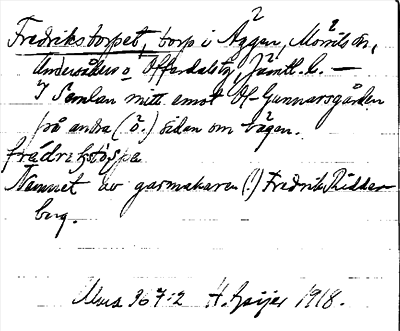 Fredrikstorpet, torp i Äggen, Mörsils sn,
Undersåkers o. Offerdals tg, Jämtl. l. —
I Semlan mitt emot Ol-Gunnarsgården
på andra (ö.) sidan om vägen.
frädrekstos̀pa
Namnet av garmakaren (!) Fredrik Ridder
berg.
Mus 367:2 H. Geijer 1918.